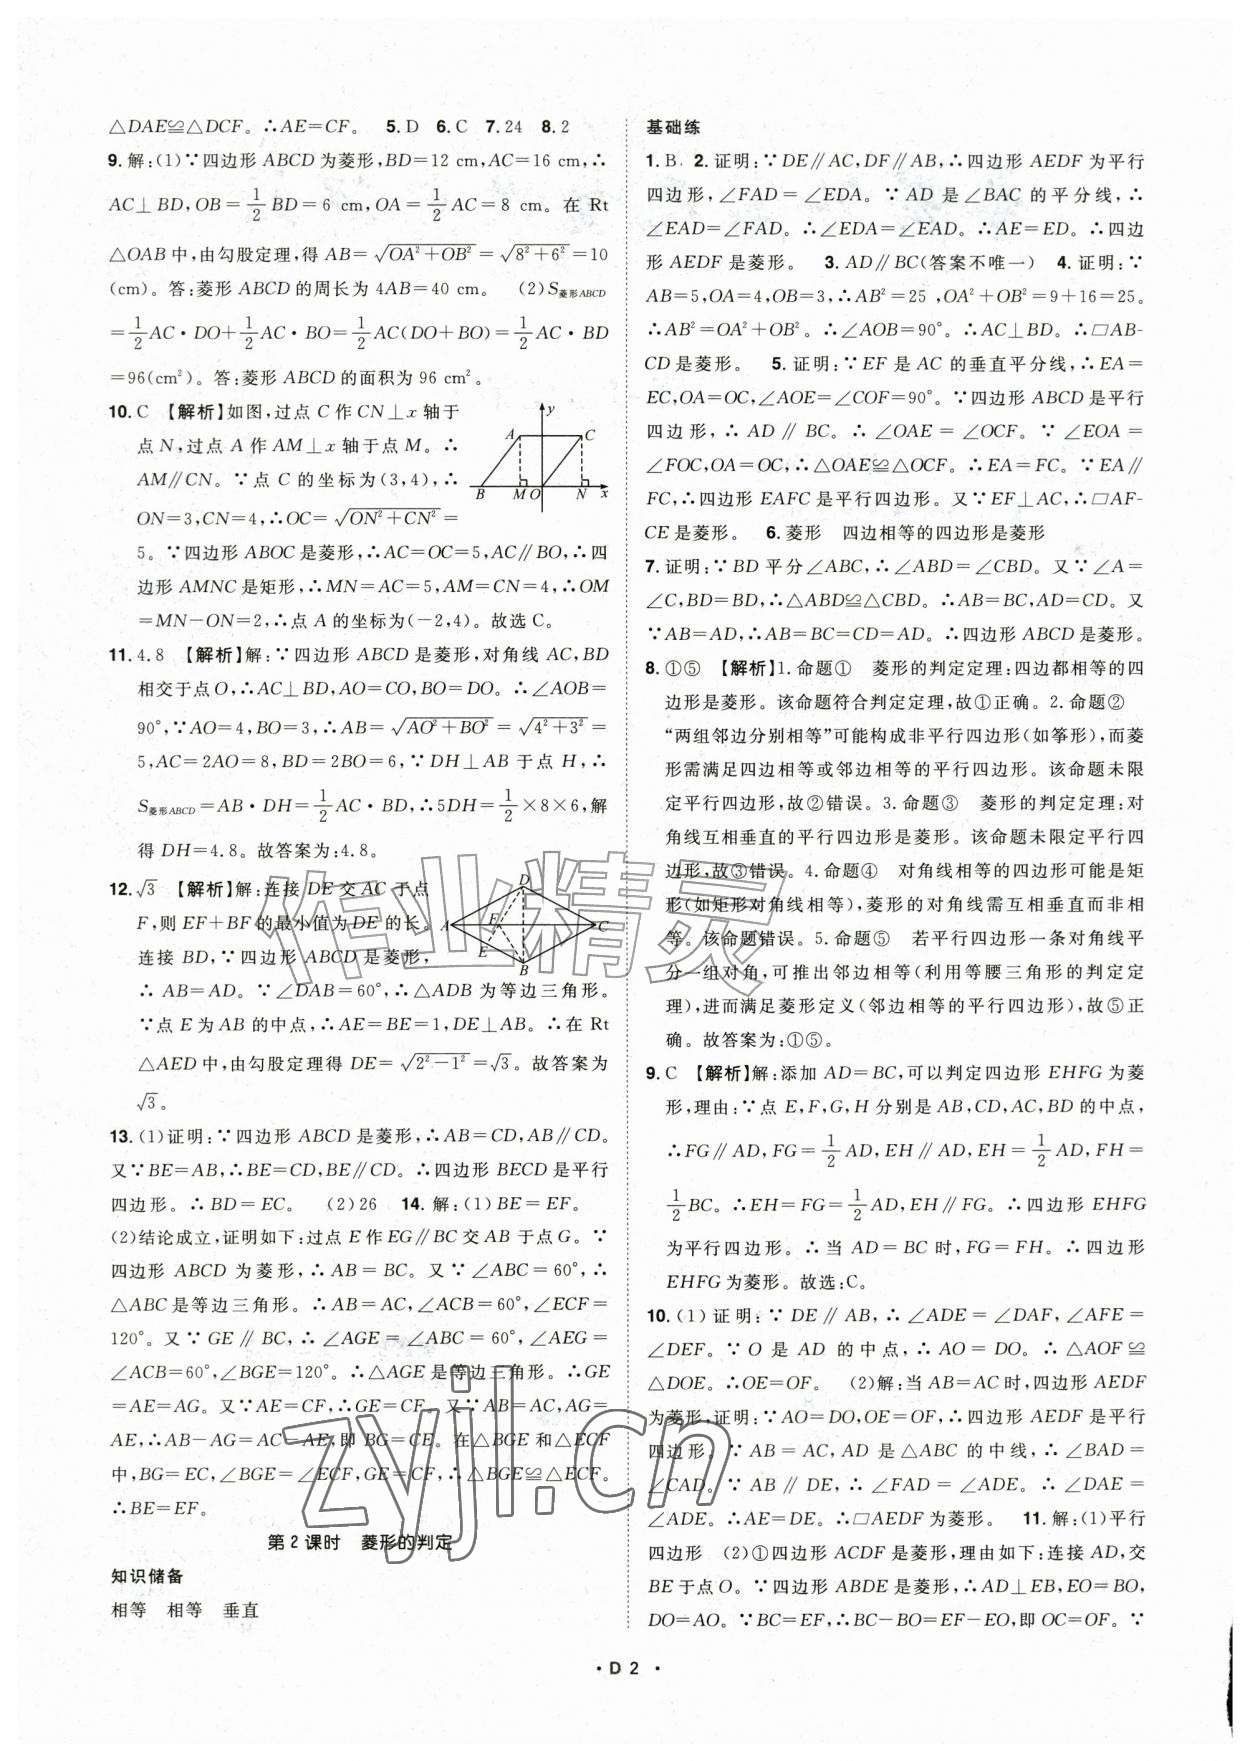 △DAE≌△DCF。∴AE=CF。 5. D 6. C 7. 24 8. 2
9. 解:(1)∵四边形 ABCD 为菱形,BD=12 cm,AC=16 cm,∴
AC⊥BD,OB=1/2BD=6 cm,OA=1/2AC=8 cm。在 Rt
△OAB 中,由勾股定理,得 AB=√(OA²+OB²)=√(8²+6²)=10
(cm)。答:菱形 ABCD 的周长为 4AB=40 cm。 (2)S菱形ABCD
=1/2AC·DO+1/2AC·BO=1/2AC(DO+BO)=1/2AC·BD
=96(cm²)。答:菱形 ABCD 的面积为 96 cm²。
10. C 【解析】如图,过点 C 作 CN⊥x 轴于
点 N,过点 A 作 AM⊥x 轴于点 M。∴
AM∥CN。∵点 C 的坐标为(3,4),∴
ON=3,CN=4,∴OC=√(ON²+CN²)=
y A C B M O N x
5。∵四边形 ABOC 是菱形,∴AC=OC=5,AC∥BO,∴四
边形 AMNC 是矩形,∴MN=AC=5,AM=CN=4,∴OM
=MN-ON=2,∴点 A 的坐标为(-2,4)。故选 C。
11. 4.8 【解析】解:∵四边形 ABCD 是菱形,对角线 AC,BD
相交于点 O,∴AC⊥BD,AO=CO,BO=DO。∴∠AOB=
90°,∵AO=4,BO=3,∴AB=√(AO²+BO²)=√(4²+3²)=
5,AC=2AO=8,BD=2BO=6,∵DH⊥AB 于点 H,∴
S菱形ABCD=AB·DH=1/2AC·BD,∴5DH=1/2×8×6,解
得 DH=4.8。故答案为:4.8。
12. √3 【解析】解:连接 DE 交 AC 于点
F,则 EF+BF 的最小值为 DE 的长。
连接 BD,∵四边形 ABCD 是菱形,
D A F C E B
∴AB=AD。∵∠DAB=60°,∴△ADB 为等边三角形。
∵点 E 为 AB 的中点,∴AE=BE=1,DE⊥AB。∴在 Rt
△AED 中,由勾股定理得 DE=√(2²-1²)=√3。故答案为
√3。
13. (1)证明:∵四边形 ABCD 是菱形,∴AB=CD,AB∥CD。
又∵BE=AB,∴BE=CD,BE∥CD。∴四边形 BECD 是平行
四边形。∴BD=EC。 (2)26 14. 解:(1)BE=EF。
(2)结论成立,证明如下:过点 E 作 EG∥BC 交 AB 于点 G。∵
四边形 ABCD 为菱形,∴AB=BC。又∵∠ABC=60°,∴
△ABC 是等边三角形。∴AB=AC,∠ACB=60°,∠ECF=
120°。又∵GE∥BC,∴∠AGE=∠ABC=60°,∠AEG=
∠ACB=60°,∠BGE=120°。∴△AGE 是等边三角形。∴GE
=AE=AG。又∵AE=CF,∴GE=CF。又∵AB=AC,AG=
AE,∴AB-AG=AC-AE,即 BG=CE。在△BGE 和△ECF
中,BG=EC,∠BGE=∠ECF,GE=CF,∴△BGE≌△ECF。
∴BE=EF。
第 2 课时 菱形的判定
知识储备
相等 相等 垂直
基础练
1. B 2. 证明:∵DE∥AC,DF∥AB,∴四边形 AEDF 为平行
四边形,∠FAD=∠EDA。∵AD 是∠BAC 的平分线,∴
∠EAD=∠FAD。∴∠EDA=∠EAD。∴AE=ED。∴四边
形 AEDF 是菱形。 3. AD∥BC(答案不唯一) 4. 证明:∵
AB=5,OA=4,OB=3,∴AB²=25 ,OA²+OB²=9+16=25。
∴AB²=OA²+OB²。∴∠AOB=90°。∴AC⊥BD。∴□AB-
CD 是菱形。 5. 证明:∵EF 是 AC 的垂直平分线,∴EA=
EC,OA=OC,∠AOE=∠COF=90°。∵四边形 ABCD 是平行
四边形,∴AD∥BC。∴∠OAE=∠OCF。∵∠EOA=
∠FOC,OA=OC,∴△OAE≌△OCF。∴EA=FC。∵EA∥
FC,∴四边形 EAFC 是平行四边形。又∵EF⊥AC,∴□AF-
CE 是菱形。 6. 菱形 四边相等的四边形是菱形
7. 证明:∵BD 平分∠ABC,∴∠ABD=∠CBD。又∵∠A=
∠C,BD=BD,∴△ABD≌△CBD。∴AB=BC,AD=CD。又
∵AB=AD,∴AB=BC=CD=AD。∴四边形 ABCD 是菱形。
8. ①⑤ 【解析】1. 命题① 菱形的判定定理:四边都相等的四
边形是菱形。该命题符合判定定理,故①正确。2. 命题②
“两组邻边分别相等”可能构成非平行四边形(如筝形),而菱
形需满足四边相等或邻边相等的平行四边形。该命题未限
定平行四边形,故②错误。3. 命题③ 菱形的判定定理:对
角线互相垂直的平行四边形是菱形。该命题未限定平行四
边形,故③错误。4. 命题④ 对角线相等的四边形可能是矩
形(如矩形对角线相等),菱形的对角线需互相垂直而非相
等。该命题错误。5. 命题⑤ 若平行四边形一条对角线平
分一组对角,可推出邻边相等(利用等腰三角形的判定定
理),进而满足菱形定义(邻边相等的平行四边形),故⑤正
确。故答案为:①⑤。
9. C 【解析】解:添加 AD=BC,可以判定四边形 EHFG 为菱
形,理由:∵点 E,F,G,H 分别是 AB,CD,AC,BD 的中点,
∴FG∥AD,FG=1/2AD,EH∥AD,EH=1/2AD,FH=
1/2BC。∴EH=FG=1/2AD,EH∥FG。∴四边形 EHFG
为平行四边形。∴当 AD=BC 时,FG=FH。∴四边形
EHFG 为菱形。故选:C。
10. (1)证明:∵DE∥AB,∴∠ADE=∠DAF,∠AFE=
∠DEF。∵O 是 AD 的中点,∴AO=DO。∴△AOF≌
△DOE。∴OE=OF。 (2)解:当 AB=AC 时,四边形 AEDF
为菱形,证明:∵AO=DO,OE=OF,∴四边形 AEDF 是平行
四边形。∵AB=AC,AD 是△ABC 的中线,∴∠BAD=
∠CAD。∵AB∥DE,∴∠BAD=∠ADE。∴∠DAE=
∠ADE。∴AE=DE。∴□AEDF 为菱形。 11. 解:(1)平行
四边形 (2)①四边形 ACDF 是菱形,理由如下:连接 AD,交
BE 于点 O。∵四边形 ABDE 是菱形,∴AD⊥EB,EO=BO,
DO=AO。∵BC=EF,∴BC-BO=EF-EO,即 OC=OF。∵
· D 2 ·
作业精灵
zyjl.cn